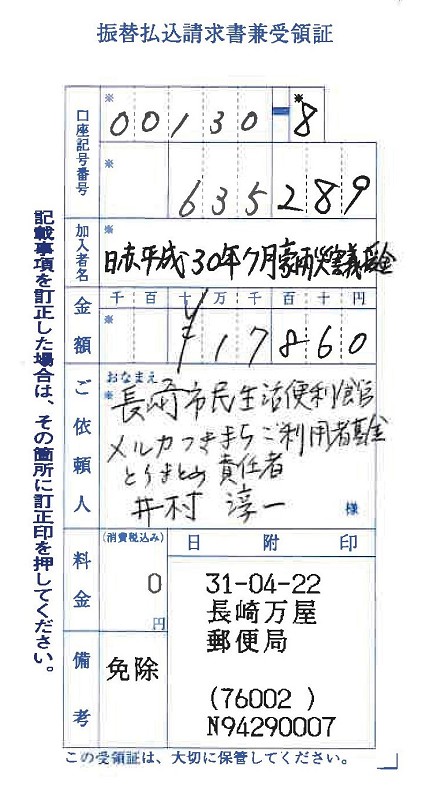 振替払込請求書兼受領証
口座記号番号
※ 00130-※8
※ 635289
加入者名
※ 日赤平成30年7月豪雨災害義援金
金額
千百十万千百十円
※ ¥17860
ご依頼人
おなまえ
※ 長崎市民生活便利会館
メルカつきまちご利用者基金
とりまとめ責任者
井村 淳一
様
料金
(消費税込み)
0
円
備考
免除
日附印
31-04-22
長崎万屋
郵便局
(76002 )
N94290007
記載事項を訂正した場合は、その箇所に訂正印を押してください。
この受領証は、大切に保管してください。